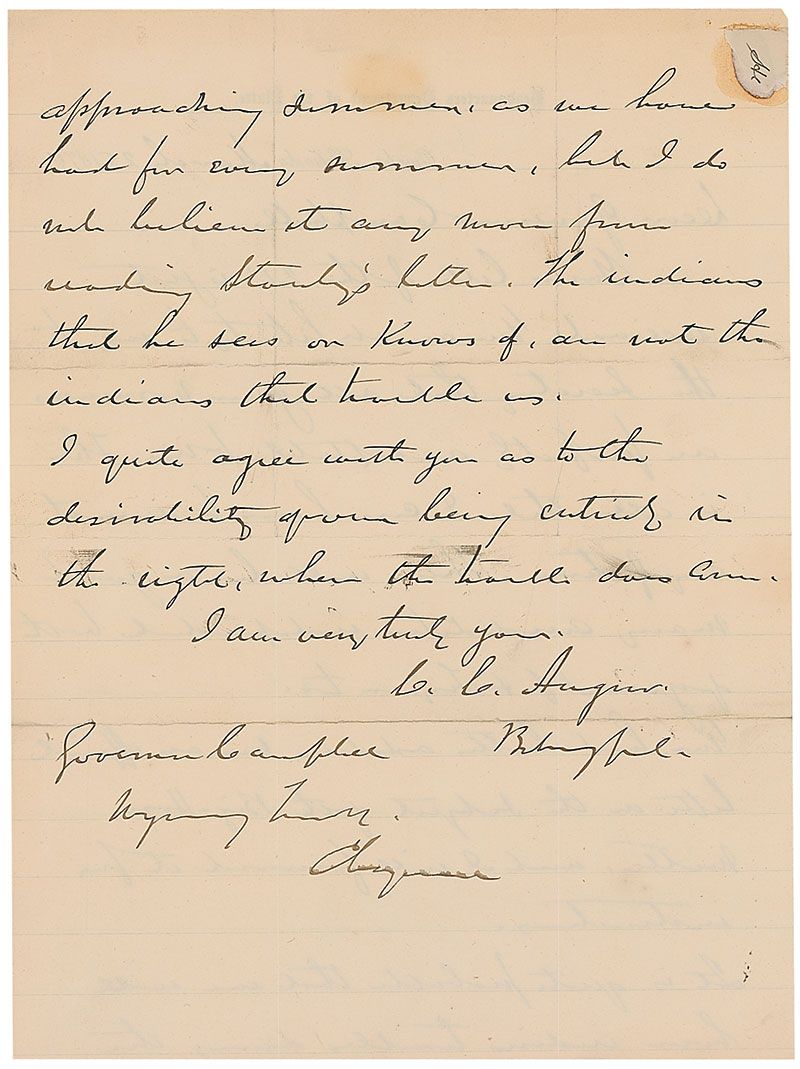 approaching summer, as we have
had for every summer, but I do
not believe it any more from
reading Stanley's letter. The indians
that he sees or knows of, are not the
indians that trouble us.
I quite agree with you as to the
desirability of our being entirely in
the right, when the trouble does come.
I am very truly yours.
C. C. Augur.
Governor Campbell
Wyoming Terr.
Cheyenne